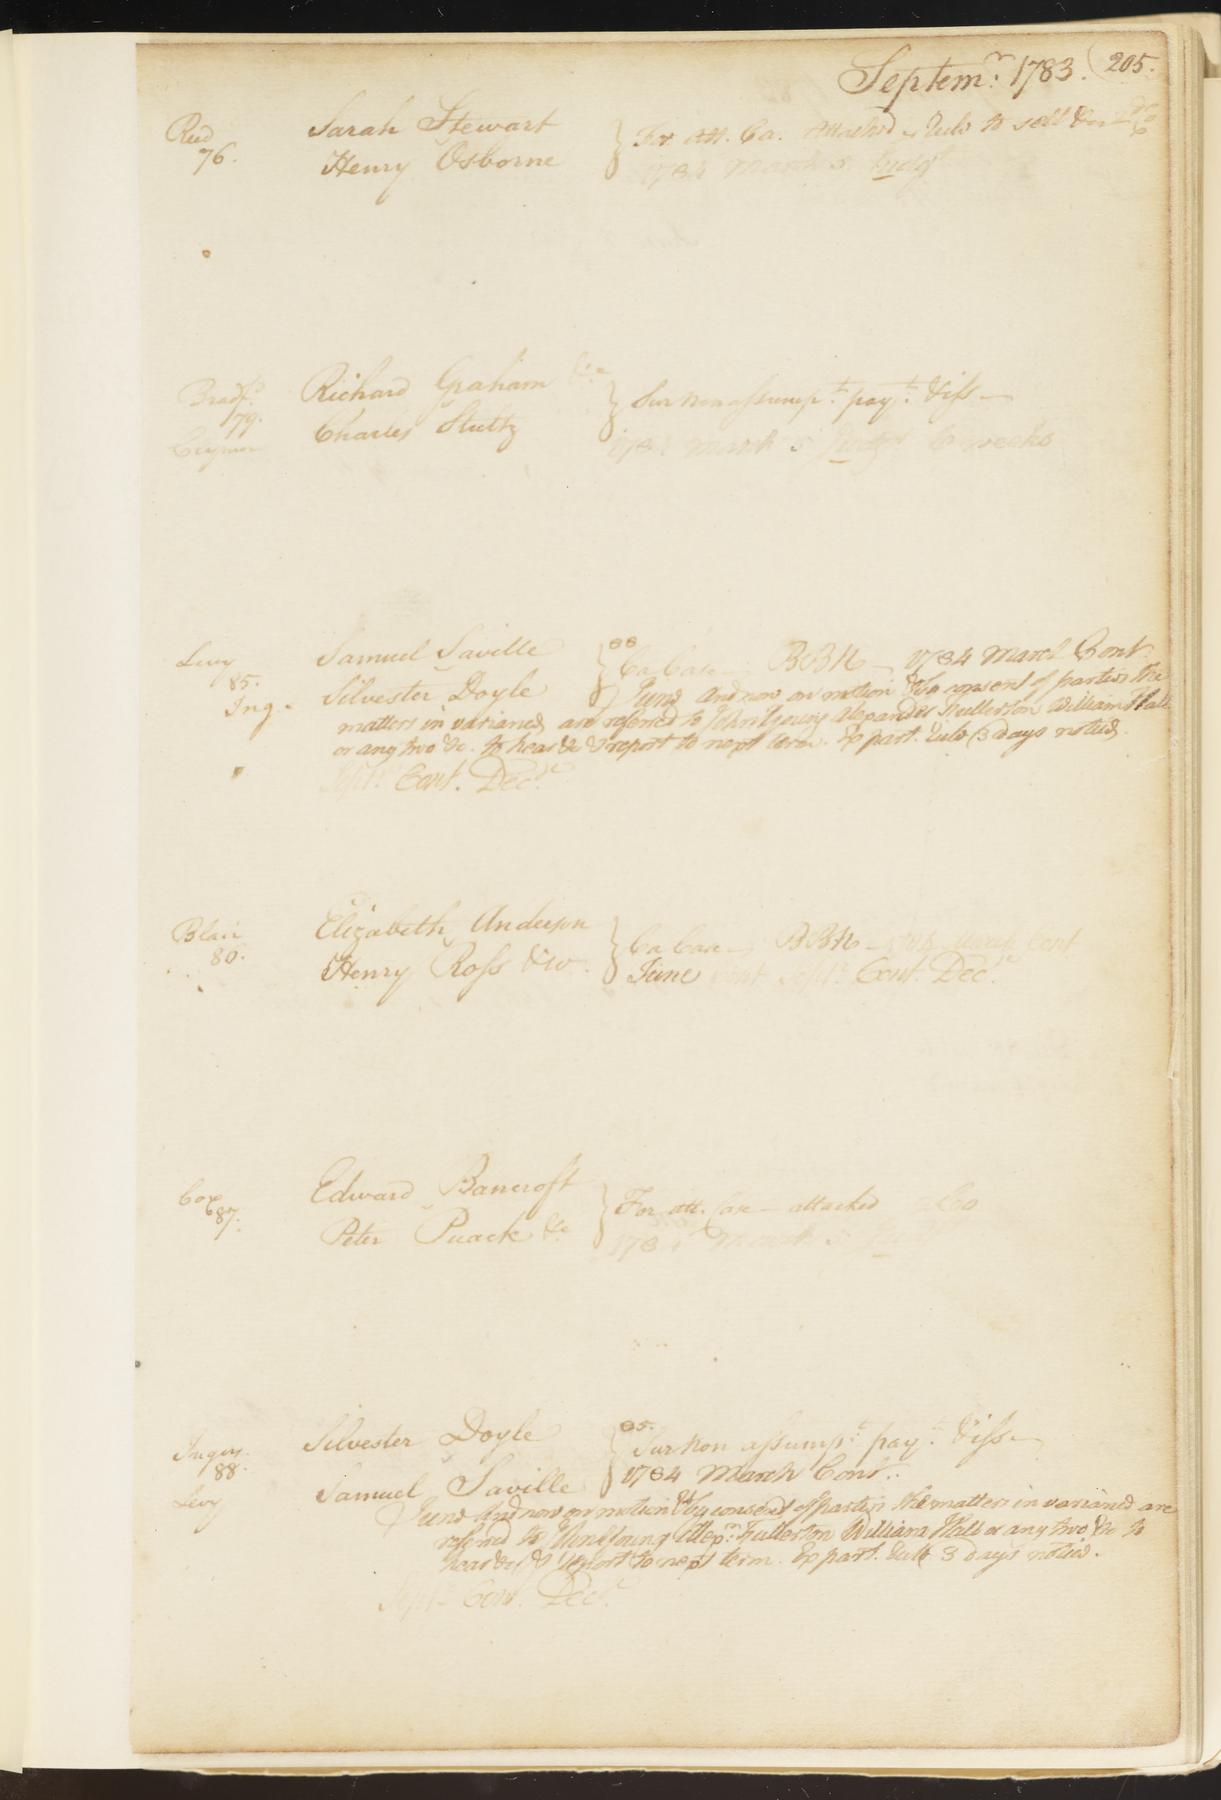 Septem.r 1783. (205.
Reed Sarah Stewart } For. Att. Ca. Attached Rule to sell &c.
76. Henry Osborne 1784 March 5 Judgt
Bradf.d Richard Graham &c } Sur non assump.t pay.t & iss
79. Charles Stultz 1784 March 5 Judgt 6 weeks
Levy Samuel Saville } 88 Ca Case BBK 1784 March Cont.
85. Silvester Doyle June And now on motion & by consent of parties the
Ing.
matters in variance are referred to John Young Alexander Fullerton William Hall
or any two &c. to hear &c & report to next term. Ex part. Rule (3 days notice.
Sept.r Cont. Dec.r
Blair Elizabeth Anderson } Ca Case BBK March Cont
86. Henry Ross & W. June Cont Sept.r Cont. Dec.r
Cox Edward Bancroft } For. Att. Case attached
87. Peter &c 1784 March 5
Ingers. Silvester Doyle } 85. Sur non assump.t pay.t & iss
88. Samuel Saville 1784 March Cont.
Levy June And now on motion & by consent of parties the matters in variance are
referred to John Young Alex.r Fullerton William Hall or any two &c to
hear &c & report to next term. Ex part. Rule 3 days notice.
Sept.r Cont. Dec.r